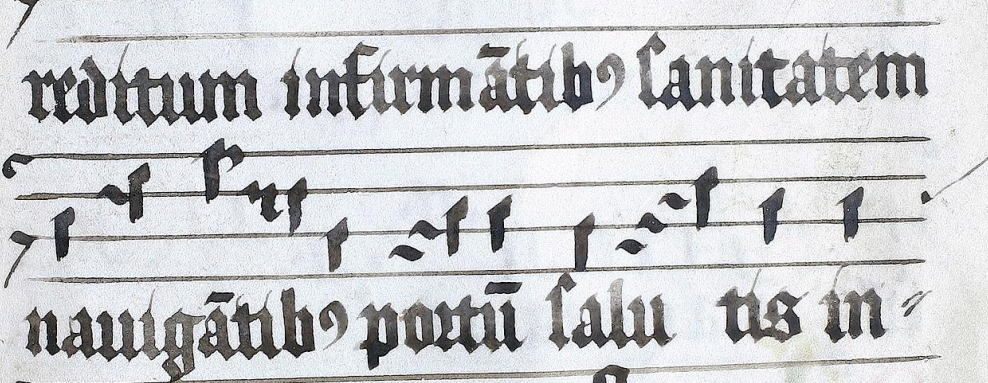 reditum infirmātibꝰ ſanitatem
nauigātibꝰ portū ſalu tis in